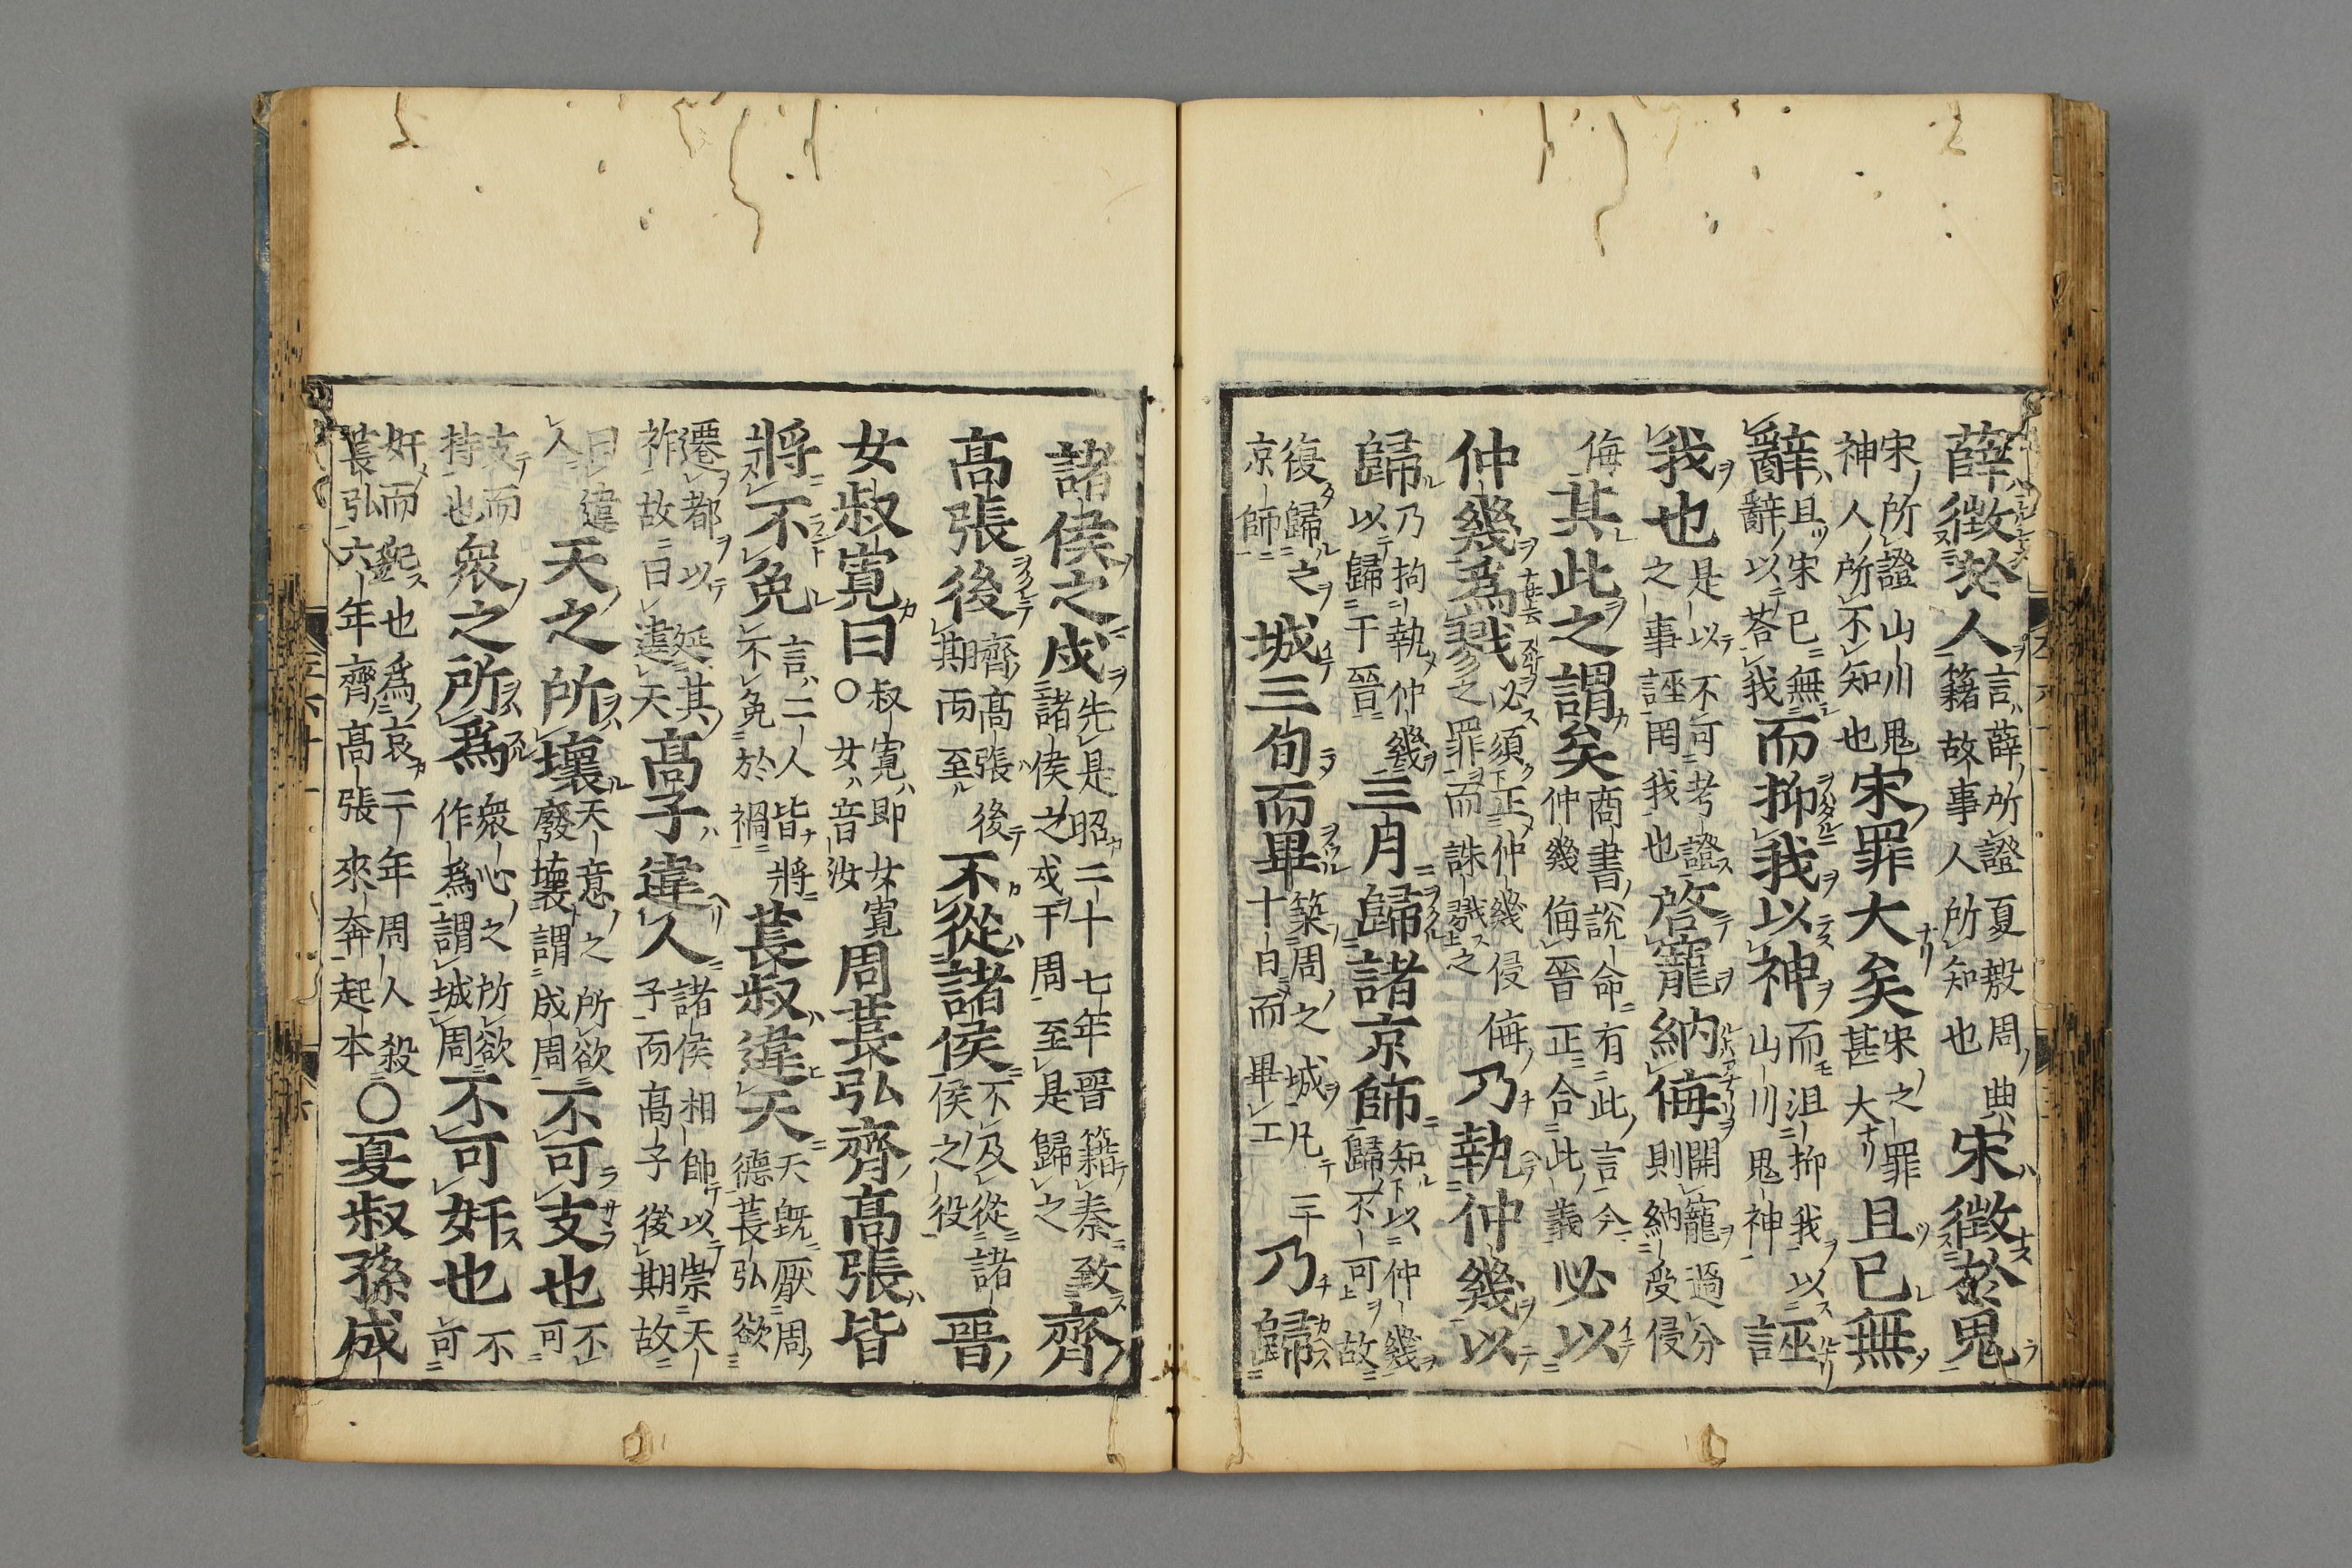 薛徴於人言薛所證夏殷周典籍故事人所知也宋徴於鬼
宋所證山川鬼神人所不知也宋罪大矣宋之罪甚大且已無
辭且宋已無辭以荅我而抑我以神而沮抑我以山川鬼神誣
我也是以不可考證之事誣罔我也啓寵納侮開寵過分則納受侵
侮其此之謂矣商書說命有此言今仲幾侮晉正合此義必以
仲幾爲戮必須正仲幾侵侮之罪而誅戮之乃執仲幾以
歸乃拘執仲幾以歸于晉三月歸諸京師知以仲幾歸不可故
復歸之京師城三旬而畢築周之城凡三十日而畢工乃歸
諸侯之戍先是昭二十七年晉籍秦致諸侯之戍于周至是歸之齊
高張後齊高張後期而至不從諸侯不及從諸侯之役晉
女叔寬曰○叔寬即女寬女音汝周萇弘齊高張皆
將不免言二人皆將不免於禍萇叔違天天既厭周德萇弘欲
遷都以延其祚故曰違天高子違人諸侯相帥以崇天子而高子後期故
曰違人天之所壞天意之所欲廢壞謂成周不可支也不可
支而持也衆之所爲衆心之所欲作爲謂城周不可奸也不可
奸而犯也爲哀二年周人殺萇弘六年齊高張來奔起本○夏叔孫成